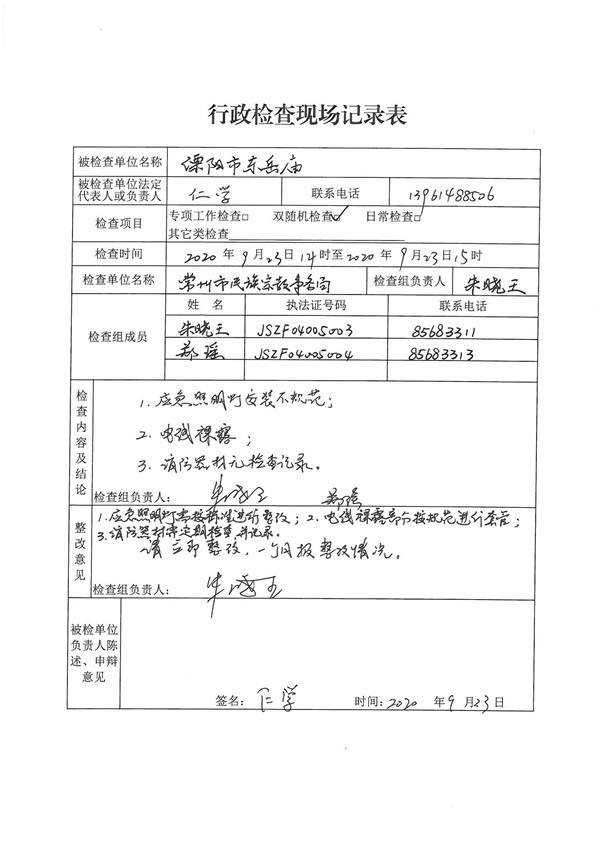 行政检查现场记录表
被检查单位名称 溧阳市东岳庙
被检查单位法定代表人或负责人 仁学 联系电话 13961488506
检查项目 专项工作检查□ 双随机检查☑ 日常检查□
其它类检查
检查时间 2020 年 9 月 23 日 14 时至 2020 年 9 月 23 日 15 时
检查单位名称 常州市民族宗教事务局 检查组负责人 朱晓王
检查组成员 姓 名 执法证号码 联系电话
朱晓王 JSZF04005003 85683311
郑瑶 JSZF04005004 85683313
检查内容及结论
1. 应急照明灯安装不规范；
2. 电线裸露；
3. 消防器材无检查记录。
检查组负责人： 朱晓王 郑瑶
整改意见
1. 应急照明灯需按标准进行整改；2. 电线裸露部分按规范进行套管；
3. 消防器材需定期检查并记录。
请立即整改，一个月报整改情况。
检查组负责人： 朱晓王
被检单位负责人陈述、申辩意见
签名： 仁学 时间：2020 年 9 月 23 日